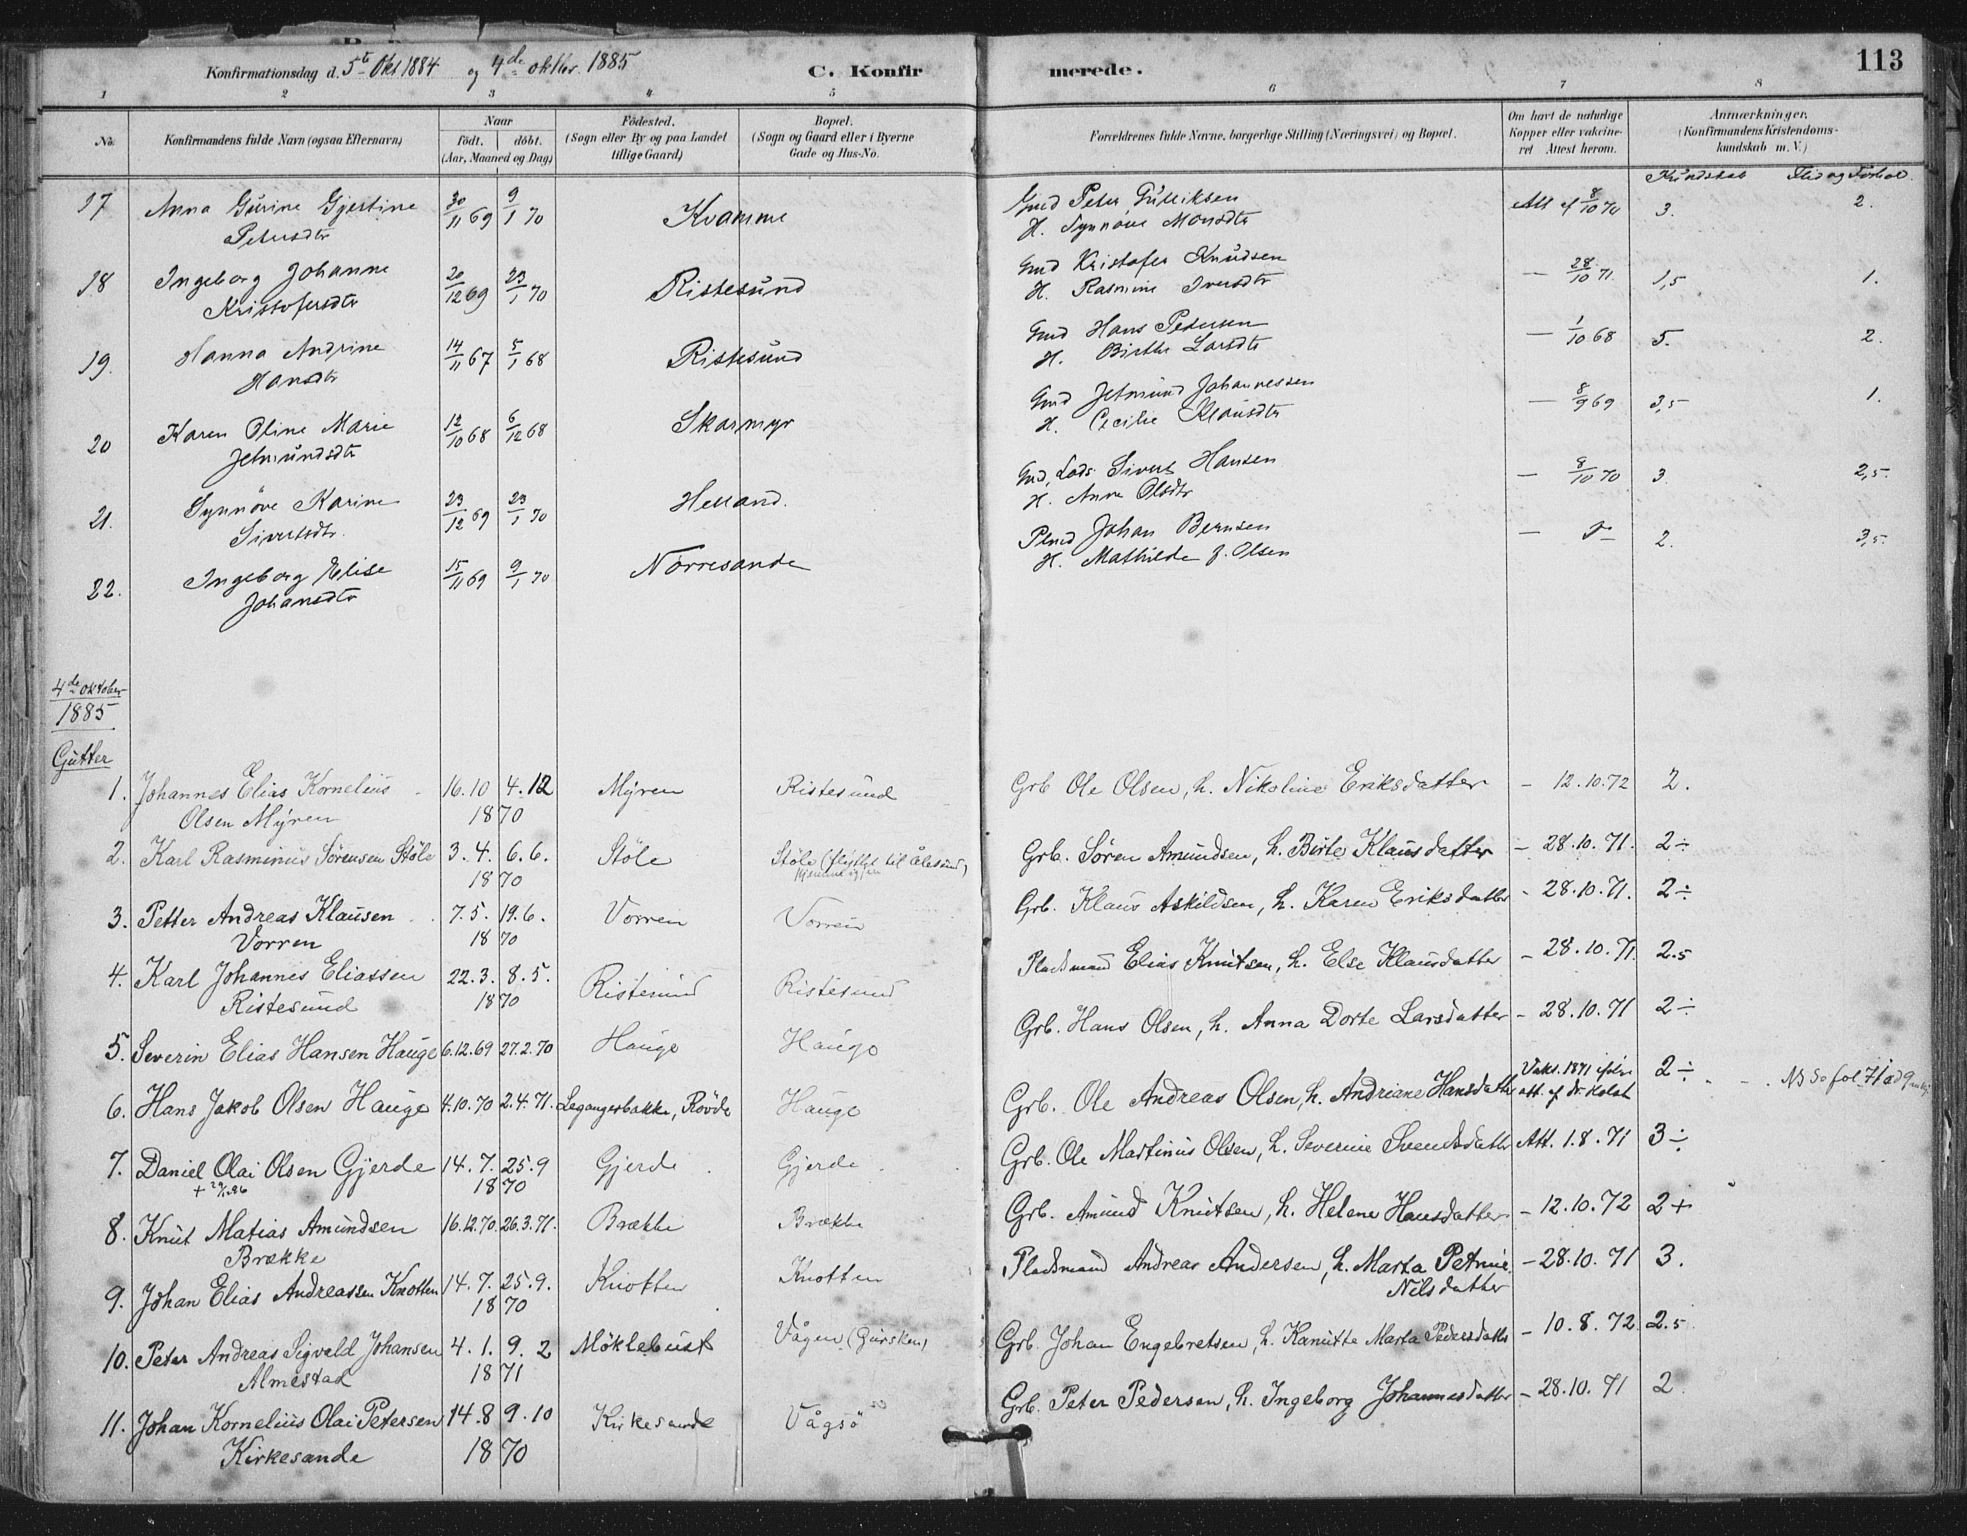 Konfirmationsdag d. 5te Okt 1884 og 4de oktbr. 1885 C. Konfirmerede. 113
1 2 3 4 5 6 7 8
No. Konfirmandens fulde Navn (ogsaa Efternavn) Naar født. døbt. (Aar, Maaned og Dag) Fødested. (Sogn eller By og paa Landet tillige Gaard) Bopæl. (Sogn og Gaard eller i Byerne Gade og Hus-No. Forældrenes fulde Navne, borgerlige Stilling (Næringsvei) og Bopæl. Om havt de naturlige Kopper eller vakcineret Attest herom. Anmærkninger. (Konfirmandens Kristendomskundskab m. V.)
Kundskab Flid og Forhol.
17 Anna Gurine Gjertine 30/11 69 9/1 70 Kvamme Gmd Peter Gulliksen Att. af 8/10 70 3. 2.
Petersdtr H. Synnøve Monsdtr
18 Ingeborg Johanne 20/12 69 23/1 70 Ristesund Gmd Kristofer Knudsen — 28/10 71 1,5 1.
Kristofersdtr H. Rasmine Iversdtr
19. Hanna Andrine 14/11 67 5/1 68 Ristesund Gmd Hans Pedersen — 1/10 68 5. 2.
Hansdtr H. Birthe Larsdtr
20 Karen Oline Marie 12/10 68 6/12 68 Skarmyr Gmd Jetmund Johannessen — 8/9 69 3,5 1.
Jetmundsdtr H. Cecilie Klausdtr
21. Synnøve Karine 23/12 69 23/1 70 Helland. Gmd, Lods Sivert Hansen — 8/10 70 3. 2,5.
Sivertsdtr. H. Anne Olsdtr
22. Ingeborg Elise 15/11 69 9/1 70 Nørresande Plmd Johan Bernsen — 2. 3,5
Johansdtr H. Mathilde J. Olsen
4de oktober
1885
Gutter
1. Johannes Elias Kornelius 16.10 4.12 Myren Ristesund Grb Ole Olsen, h. Nikoline Eriksdatter — 12.10.72 2.
Olsen Myren 1870
2. Karl Rasminus Sørensen Støle 3.4. 6.6. Støle Støle (flyttet til Ålesund) Grb. Søren Amundsen, h. Birte Klausdatter — 28.10.71. 2÷
1870
3. Petter Andreas Klausen 7.5. 19.6. Vorren Vorren Grb. Klaus Askildsen, h. Karen Eriksdatter — 28.10.71. 2÷
Vorren 1870
4. Karl Johannes Eliassen 22.3. 8.5. Ristesund Ristesund Pladsmand Elias Knutsen, h. Else Klausdatter — 28.10.71. 2.5
Ristesund 1870
5. Severin Elias Hansen Hauge 6.12.69 27.2.70 Hauge Hauge Grb. Hans Olsen, h. Anna Dorte Larsdatter — 28.10.71 2÷
6. Hans Jakob Olsen Hauge 4.10.70 2.4.71. Legangerbakke, Røvde Hauge Grb. Ole Andreas Olsen, h. Andriane Hansdatter Vaks. 1871 ifølge att. af dr. Holst 2÷ NB Se fol. 71
7. Daniel Olai Olsen Gjerde 14.7. 25.9 Gjerde Gjerde Grb. Ole Martinus Olsen, h. Severine Svendsdatter Att. 1.8.71 3÷
1870
8. Knut Matias Amundsen 16.12.70. 26.3.71. Brække Brække Grb. Amund Knutsen, h. Helene Hansdatter — 12.10.72 2+
Brække
9. Johan Elias Andreassen Knotten 14.7. 25.9. Knotten Knotten Pladsmand Andreas Andersen, h. Marta Petrine — 28.10.71 3.
1870 Nilsdatter
10. Peter Andreas Sigvald Johansen 4.1. 9.2 Møklebust Vågen (Gursken) Grb. Johan Engebretsen, h. Kanutte Marta Pedersdatter — 10.8.72 2.5
Almestad 1871
11. Johan Kornelius Olai Petersen 14.8 9.10 Kirkesande Vågsö Grb. Peter Pedersen, h. Ingeborg Johannesdatter — 28.10.71 2
Kirkesande 1870